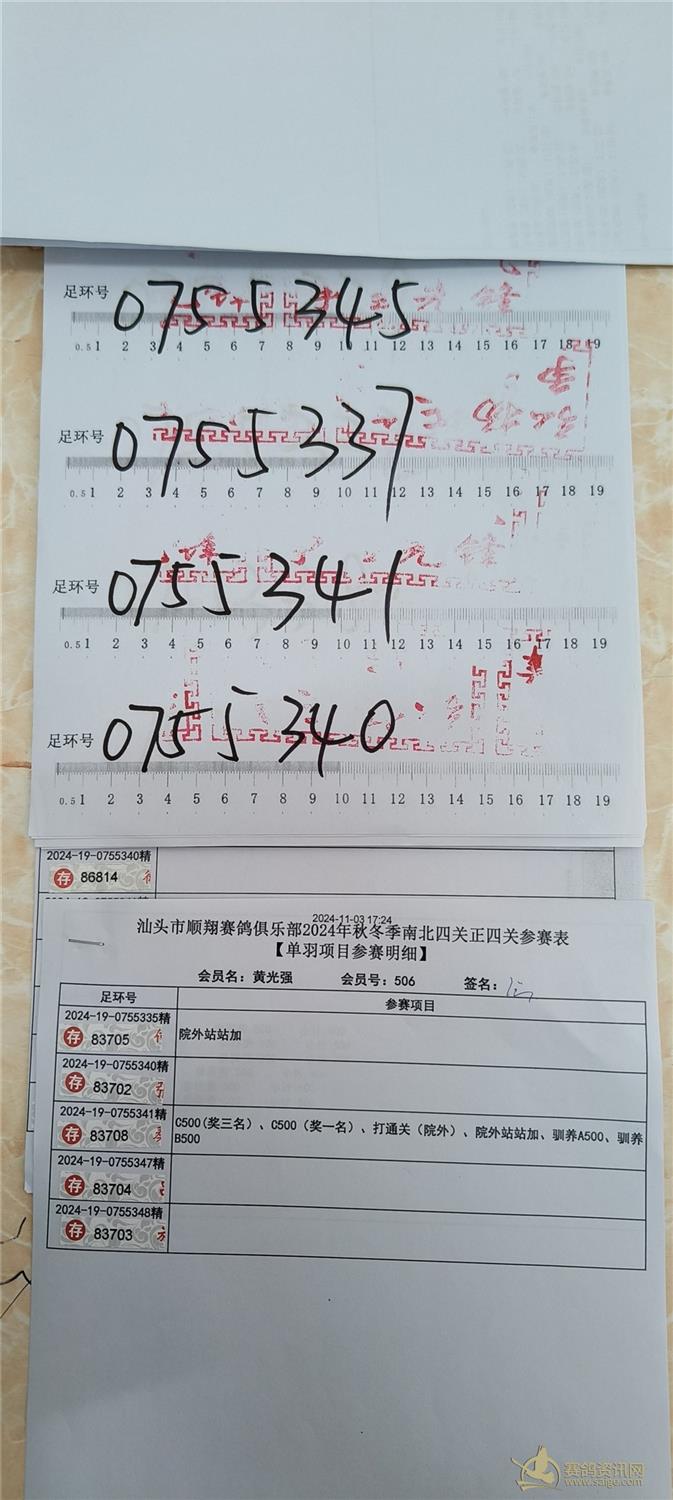 足环号 0755345
0.5 1 2 3 4 5 6 7 8 9 10 11 12 13 14 15 16 17 18 19
足环号 0755337
0.5 1 2 3 4 5 6 7 8 9 10 11 12 13 14 15 16 17 18 19
足环号 0755341
0.5 1 2 3 4 5 6 7 8 9 10 11 12 13 14 15 16 17 18 19
足环号 0755340
0.5 1 2 3 4 5 6 7 8 9 10 11 12 13 14 15 16 17 18 19
2024-19-0755340精
存 86814
2024-11-03 17:24
汕头市顺翔赛鸽俱乐部2024年秋冬季南北四关正四关参赛表
【单羽项目参赛明细】
会员名：黄光强 会员号：506 签名：
足环号 参赛项目
2024-19-0755335精
存 83705 院外站站加
2024-19-0755340精
存 83702
2024-19-0755341精
存 83708 C500(奖三名）、C500（奖一名）、打通关（院外）、院外站站加、驯养A500、驯养
B500
2024-19-0755347精
存 83704
2024-19-0755348精
存 83703
赛鸽资讯网
www.saige.com